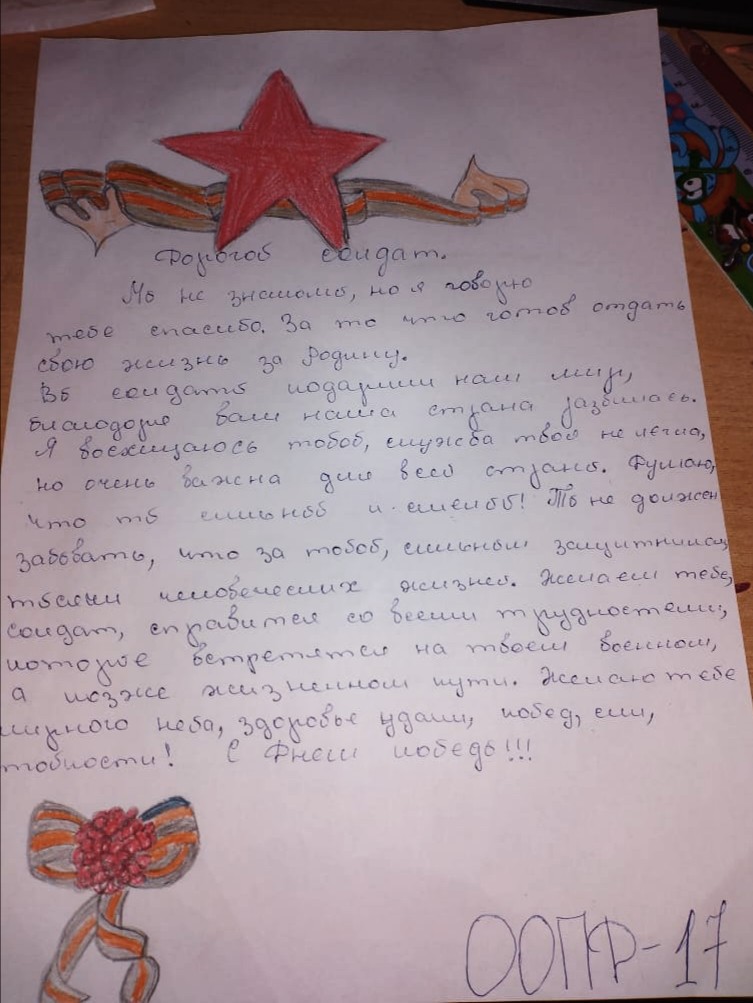 Дорогой солдат.
Мы не знакомы, но я говорю
тебе спасибо. За то что готов отдать
свою жизнь за Родину.
Вы солдаты подарили нам мир,
благодоря вам наша страна развилась.
Я восхищаюсь тобой, служба твоя не легка,
но очень важна для всей страны. Думаю,
что ты сильный и смелый! Ты не должен
забывать, что за тобой, сильным защитником
тысячи человеческих жизней. Желаем тебе,
солдат, справится со всеми трудностеми,
которые встретятся на твоем военном,
а позже жизненном пути. Желаю тебе
мирного неба, здоровье удачи, побед, сил,
С Днем победы!!!
ООПФ-17